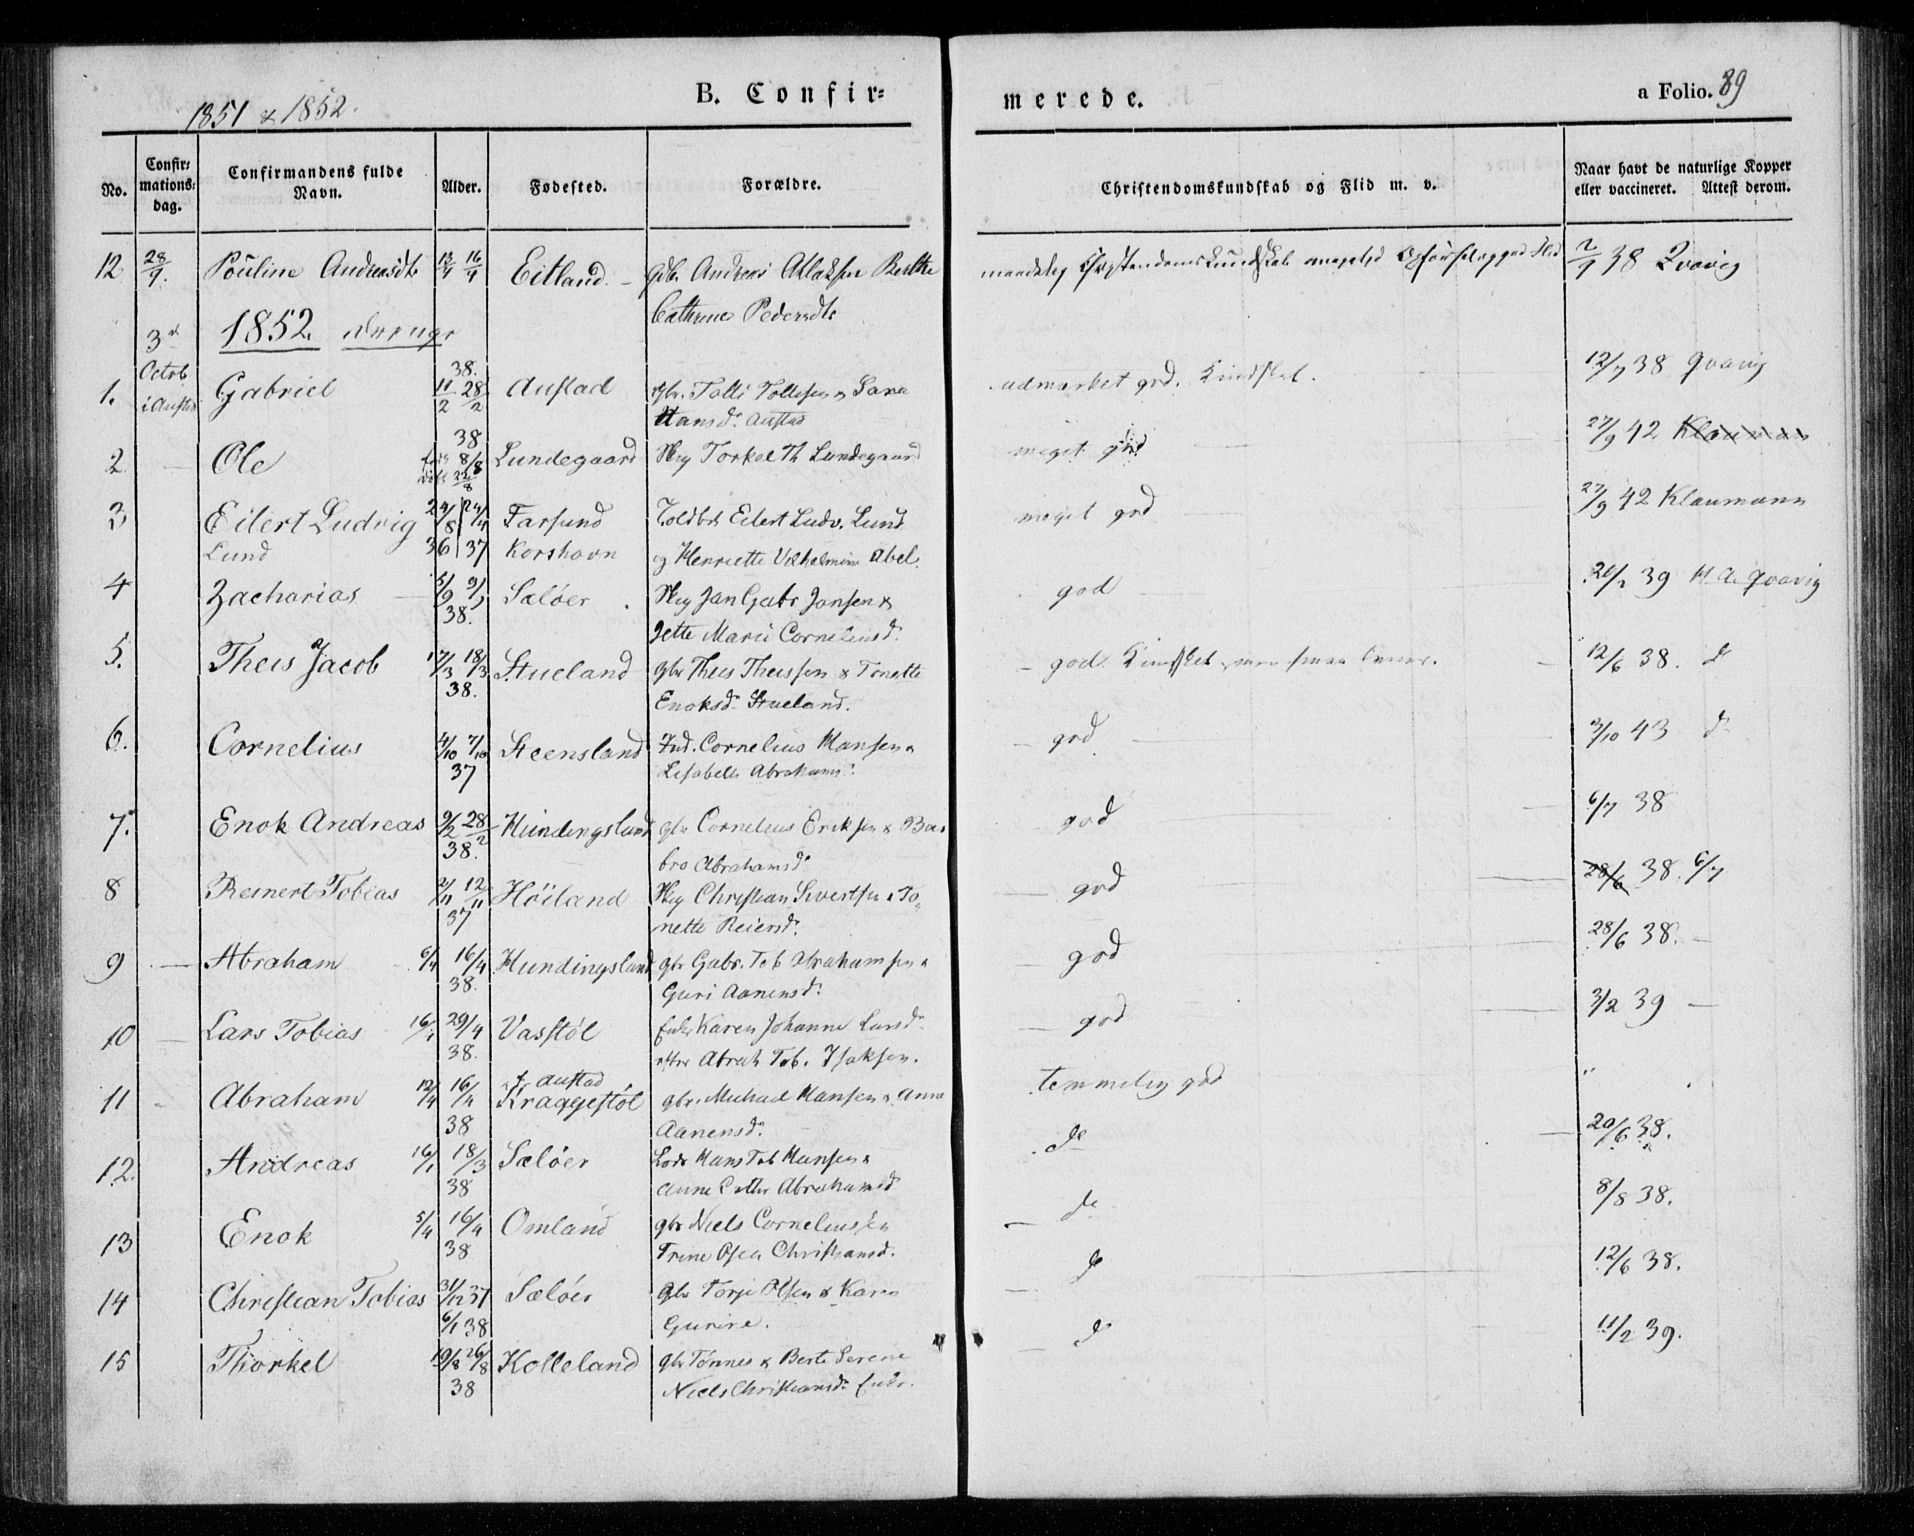 1851 & 1852.
B. Confir=
merede.
a Folio. 89
No.
Confir=
mations=
dag.
Confirmandens fulde
Navn.
Alder.
Fødested.
Forældre.
Christendomskundskab og Flid m. v.
Naar havt de naturlige Kopper
eller vaccineret. Attest derom.
12 28/9. Pouline Andreasdtr 16/4 Eitland. Gbr. Andreas Berthe
Cathrine Pedersdtr
maadelig Christendomskundskab Opførsel og god Flid 38
3d
1852. Drenge
Octob
1. Gabriel 38. 11/2 28/2 Austad Gbr. Tolli Tollefsen & Sara
Hansd. Austad
udmærket god. Kundskab. 12/7 38 Qvavig
2 Ole 38 8/8 Lundegaard Torkel Th Lundegaard
meget god 27/9 42 Klaumann
3 Eilert Ludvig 24/8 24/4 Farsund Toldbt Eilert Ludv. Lund
Lund 36 37 Korshavn og Henriette Vilhelmine Abel.
meget god 27/9 42 Klaumann
4 Zacharias 5/9 38. Sæløer Jan Gabr Jansen &
Jette Marie Corneliusd.
god 39 Qvavig
5. Theis Jacob 17/3 18/3 38. Stueland Gbr Theis Theissen & Tonette
Enoksd. Stueland.
god Kundskab, men smaa Evner. 12/6 38. do
6. Cornelius 4/10 7/10 37 Steensland Ind. Cornelius Hansen &
Lisabeth Abrahamsd.
god 3/10 43 do
7. Enok Andreas 9/2 28/2 38. Hundingsland gbr Cornelius Eriksen & Bar-
bro Abrahamsd
god 6/7 38
8 Reinert Tobias 2/11 12/11 37 Höiland Christian Sivertsen & To-
nette Reiersd.
god 28/6 38. 6/7
9 Abraham 6/4 16/4 38. Hundingsland gbr Gabr. Tob Abrahamsen &
Guri Aanensd.
god 28/6 38.
10 Lars Tobias 29/4 38. Vasstöl Enke Karen Johanne Larsd.
efter Abrah Tob. Isaksen.
god 3/2 39
11 Abraham 12/4 16/4 38 f. Austad
Kraggestöl gbr. Michael Hansen & Anne
Aanensd.
temmelig god "
12. Andreas 16/1 18/3 38 Sæløer Lods Hans Tob Hansen &
Anne Cathr Abrahamsd
do 20/6 38.
13 Enok 5/4 16/4 38 Omland gbr Niels Corneliussen
Trine Osea Christiansd.
do 8/8 38.
14 Christian Tobias 31/12 37 6/1 38 Sæløer gbr Torje Olsen & Karen
Gurine.
do 12/6 38.
15 Thorkel 19/8 26/8 38 Kolleland gbr Tønnes & Berte Serene
Niels Christiansd. Enke.
do 11/2 39.